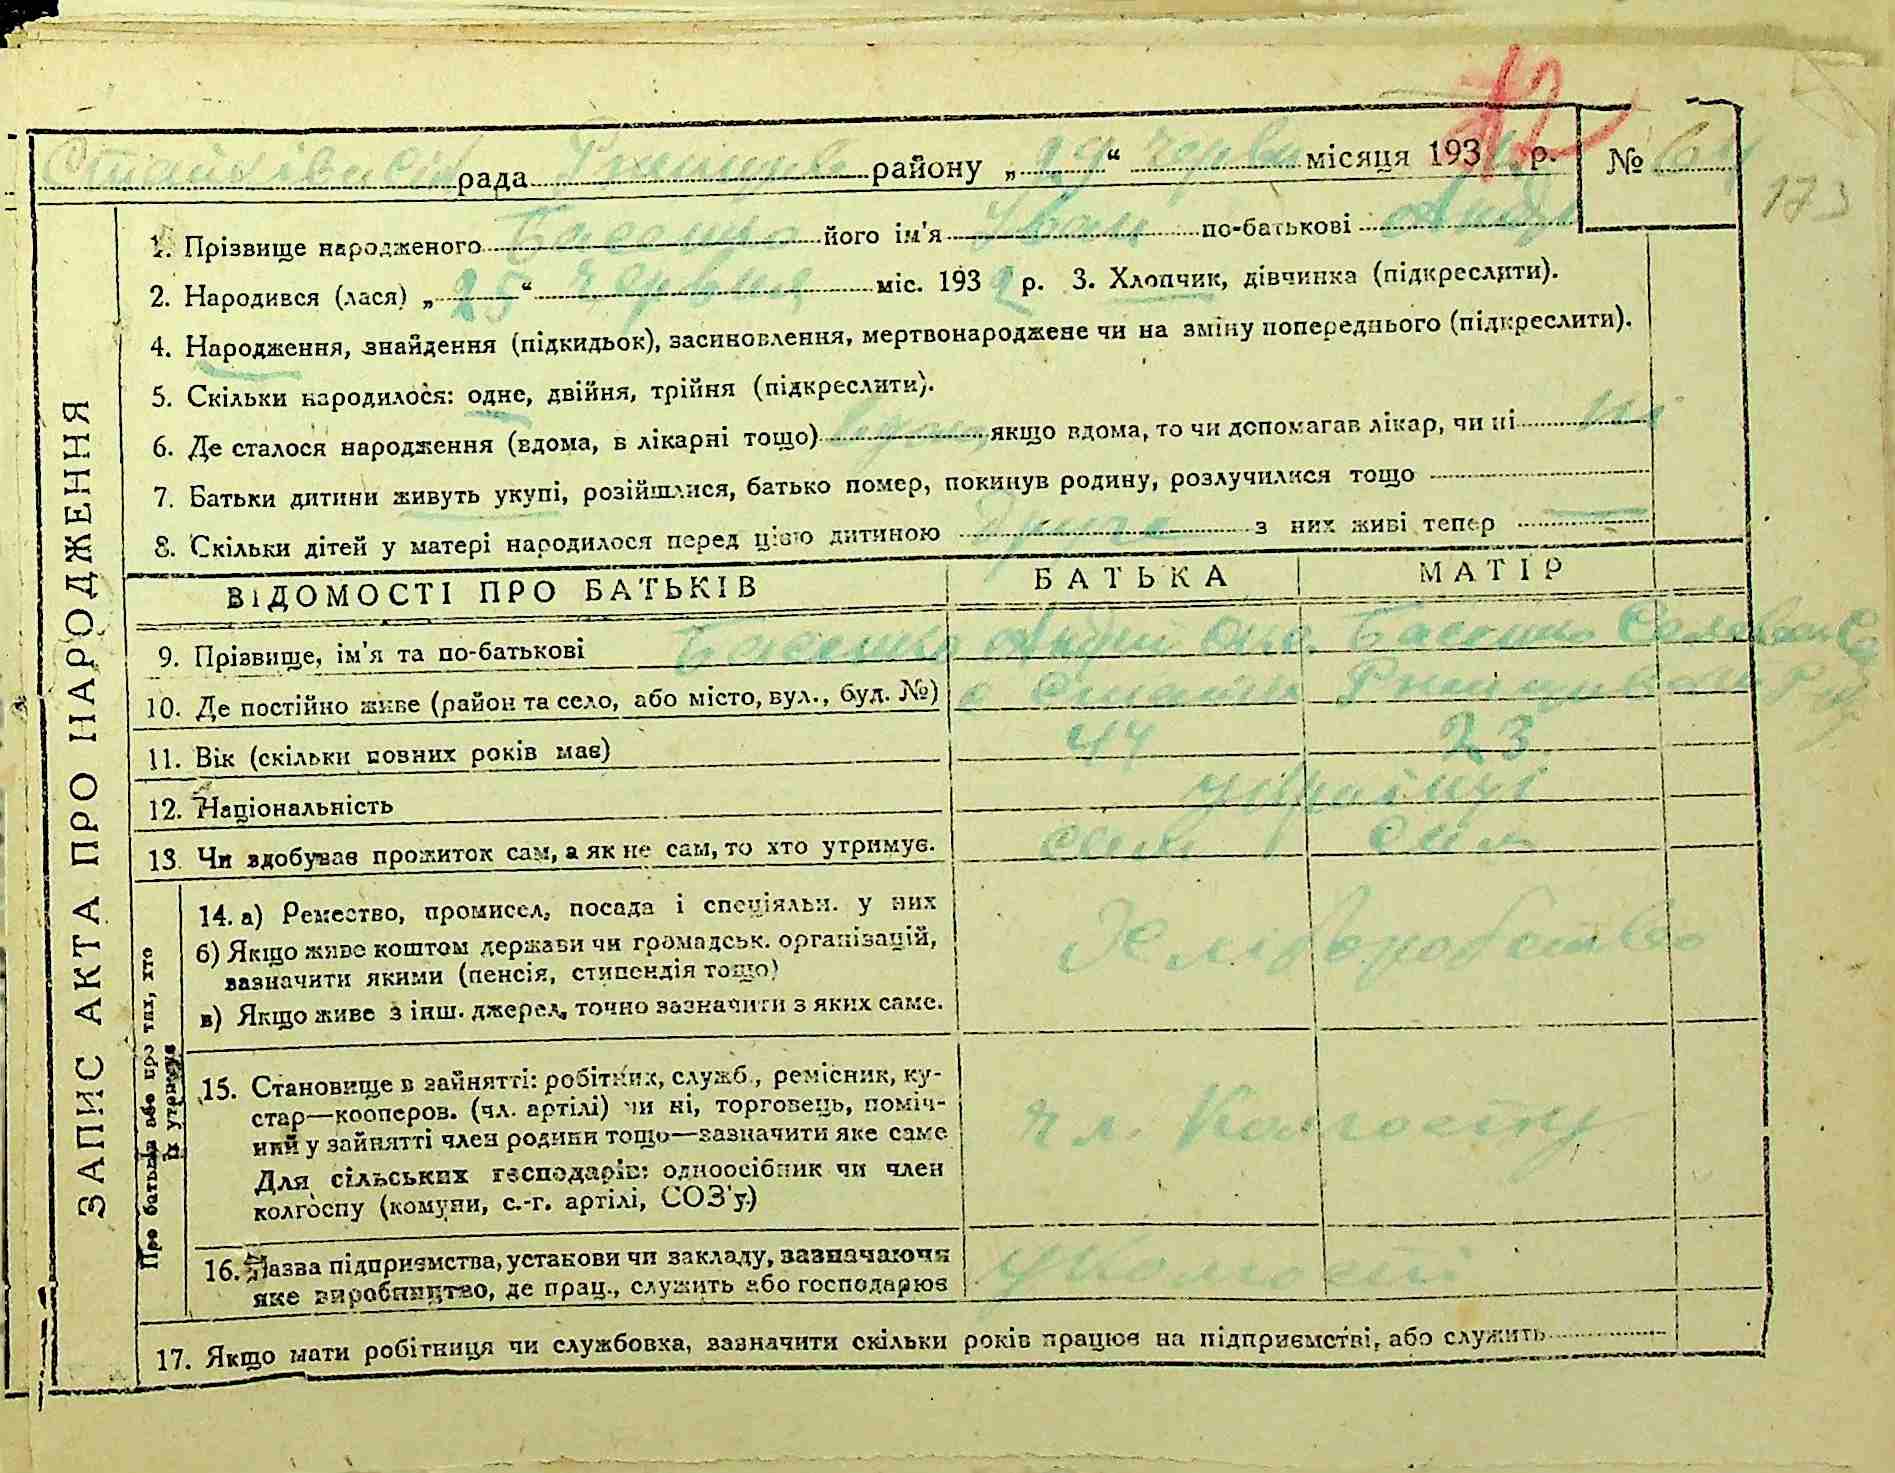 Стайківська рада Ржищев району „29“ черв місяця 1932 р. № 64
173
1. Прізвище народженого його ім'я Іван по-батькові Андр
2. Народився (лася) „25“ червня міс. 1932 р. 3. Хлопчик, дівчинка (підкреслити).
4. Народження, знайдення (підкидьок), засиновлення, мертвонароджене чи на зміну попереднього (підкреслити).
5. Скільки народилося: одне, двійня, трійня (підкреслити).
6. Де сталося народження (вдома, в лікарні тощо) вдома якщо вдома, то чи допомагав лікар, чи ні ні
7. Батьки дитини живуть укупі, розійшлися, батько помер, покинув родину, розлучилися тощо
8. Скільки дітей у матері народилося перед цією дитиною друге з них живі тепер —
ЗАПИС АКТА ПРО НАРОДЖЕННЯ
ВІДОМОСТІ ПРО БАТЬКІВ БАТЬКА МАТІР
9. Прізвище, ім'я та по-батькові Андрій
10. Де постійно живе (район та село, або місто, вул., буд. №) с Стайки
11. Вік (скільки повних років має) 44 23
12. Національність українці
13. Чи здобуває прожиток сам, а як не сам, то хто утримує. сам сам
Про батьків або про тих, хто
їх утримує
14. а) Ремество, промисел, посада і спеціяльн. у них
б) Якщо живе коштом держави чи громадськ. організацій,
зазначити якими (пенсія, стипендія тощо)
в) Якщо живе з інш. джерел, точно зазначити з яких саме.
Хліборобство
15. Становище в зайнятті: робітник, служб., ремісник, ку-
стар—кооперов. (чл. артілі) чи ні, торговець, поміч-
ний у зайнятті член родини тощо—зазначити яке саме
Для сільських господарів: одноосібник чи член
колгоспу (комуни, с.-г. артілі, СОЗ'у.)
чл. Колгоспу
16. Назва підприємства, установи чи закладу, зазначаючи
яке виробництво, де прац., служить або господарює
у колгоспі
17. Якщо мати робітниця чи службовка, зазначити скільки років працює на підприємстві, або служить